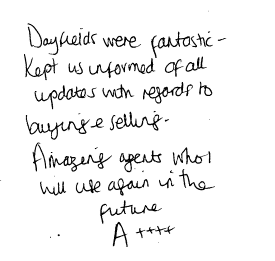 Dayfields were fantastic -
Kept us informed of all
updates with regards to
buying & selling.
Amazing agents who I
will use again in the
future
A ++++